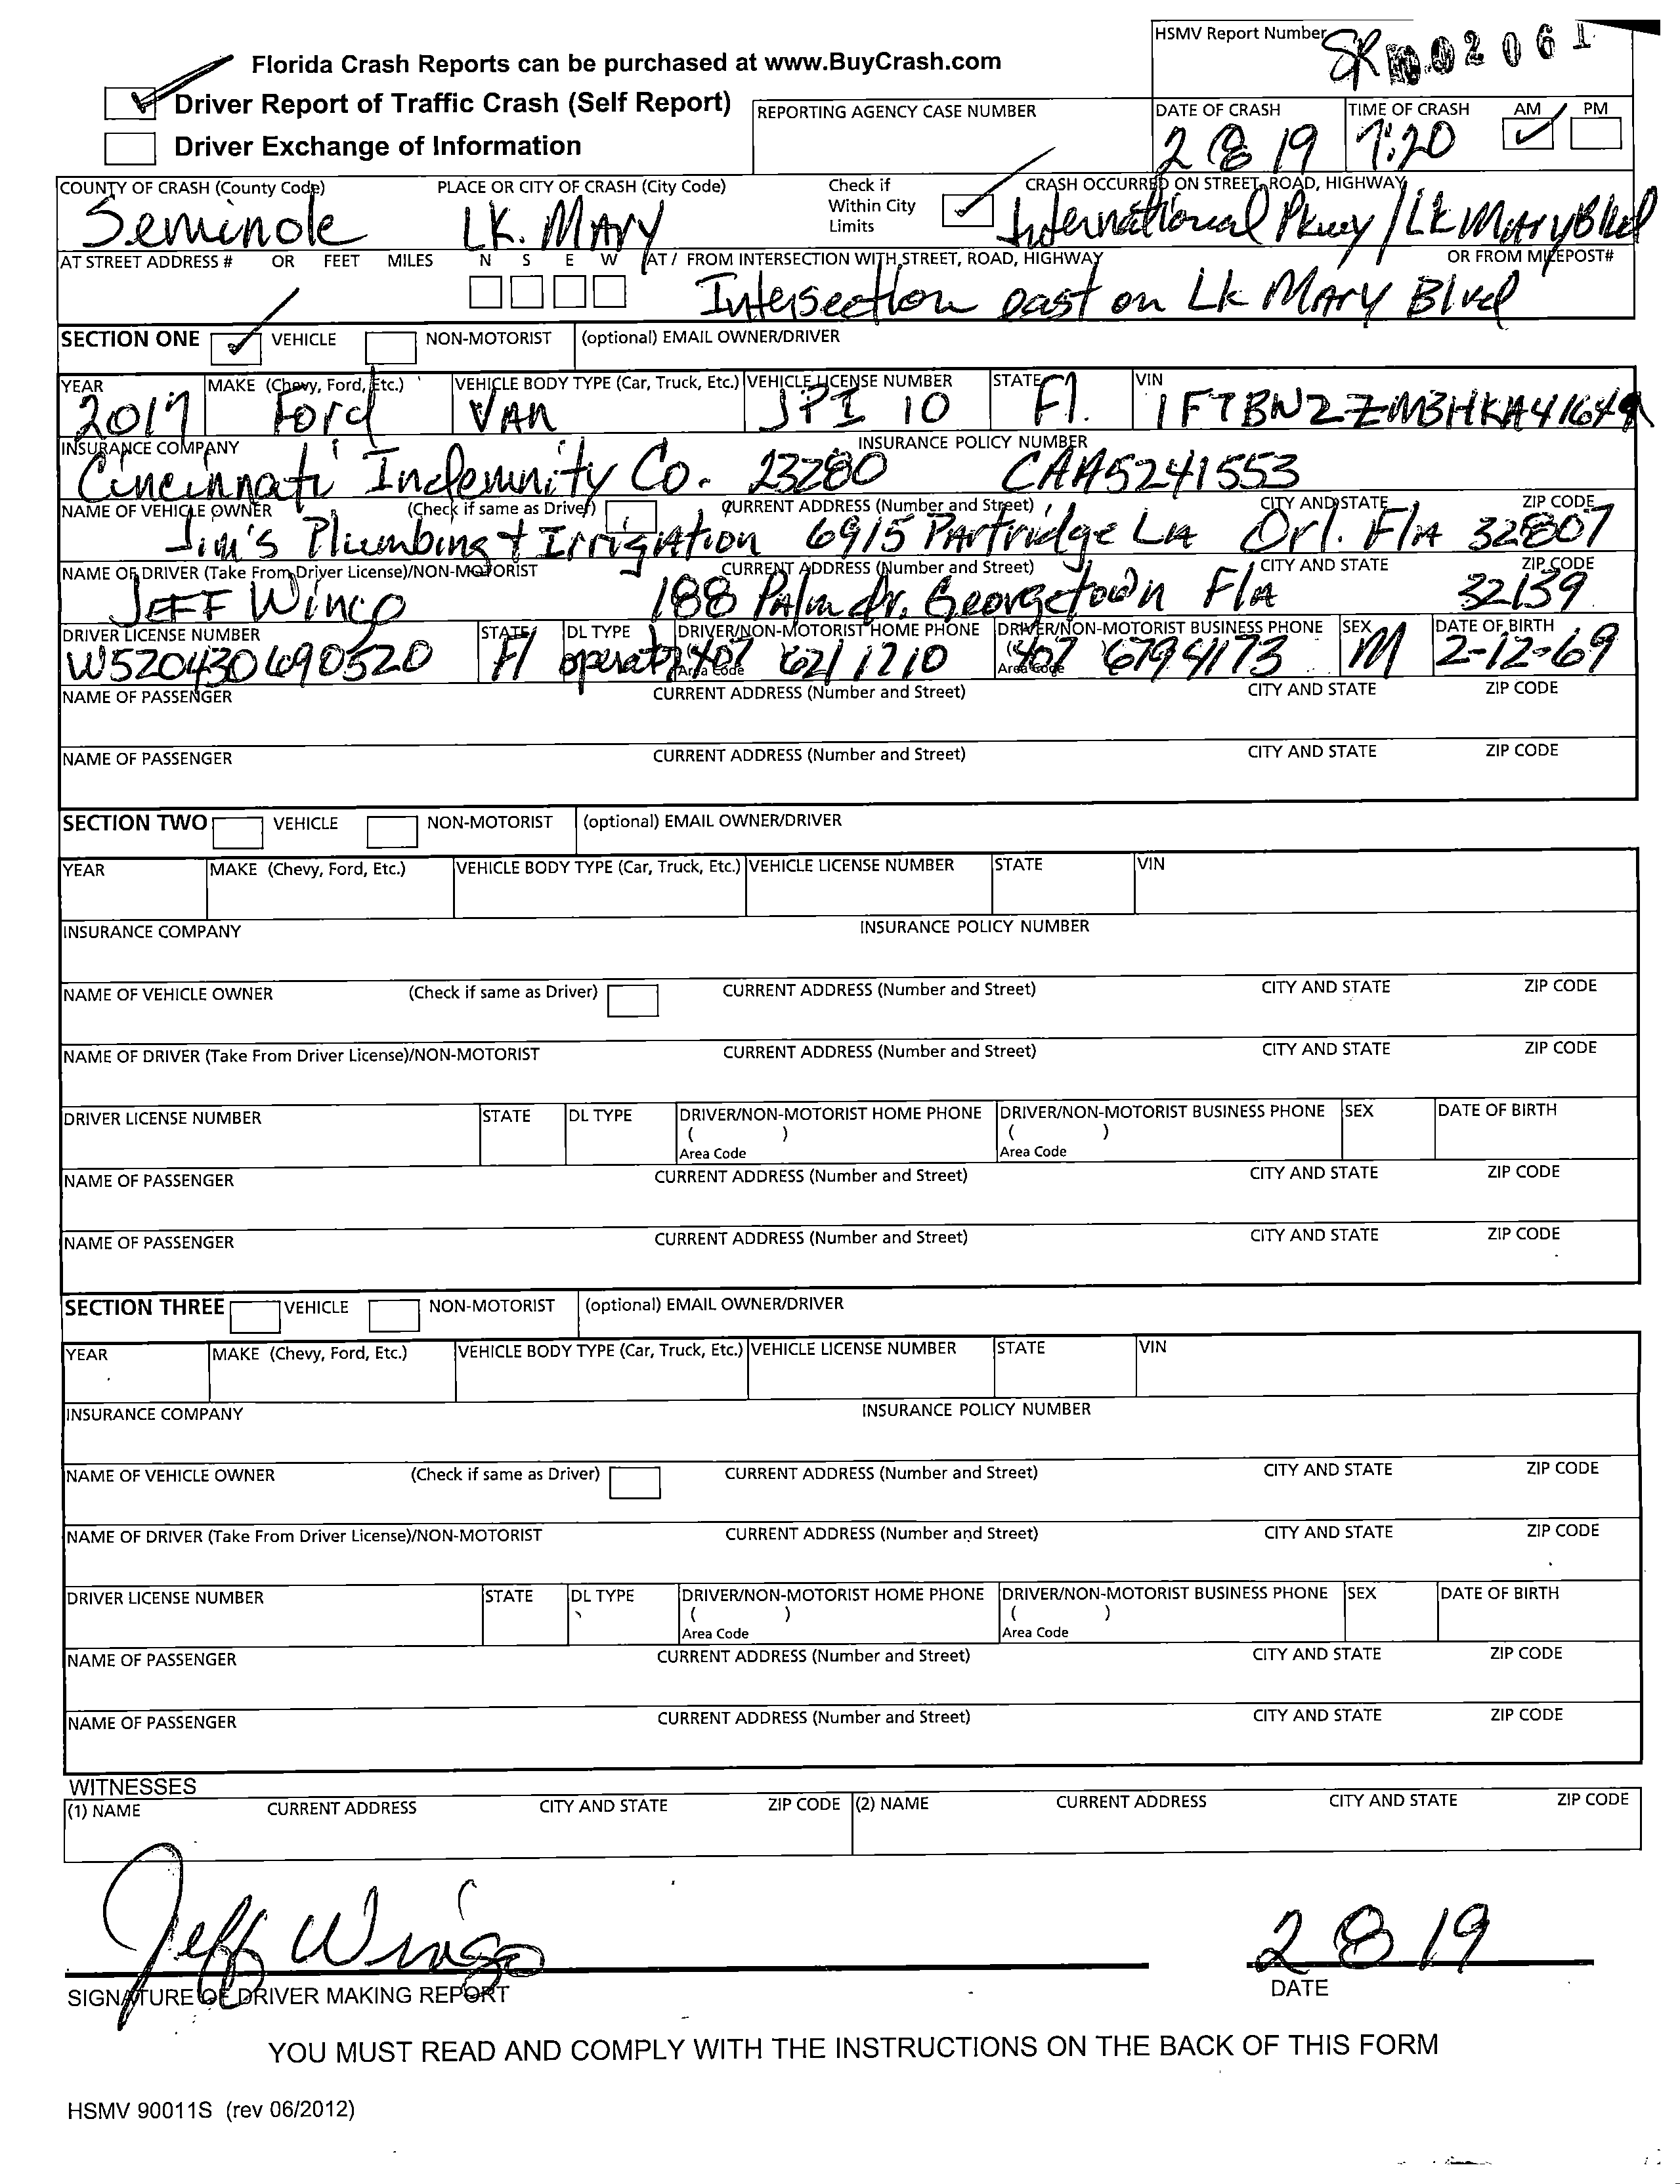 HSMV Report Number
Florida Crash Reports can be purchased at www.BuyCrash.com
Driver Report of Traffic Crash (Self Report)
REPORTING AGENCY CASE NUMBER DATE OF CRASH TIME OF CRASH AM PM
2 8 19 7:20
Driver Exchange of Information
COUNTY OF CRASH (County Code) PLACE OR CITY OF CRASH (City Code) Check if Within City Limits CRASH OCCURRED ON STREET, ROAD, HIGHWAY
Seminole LK. MARY International Pkwy / Lk Mary Blvd
AT STREET ADDRESS # OR FEET MILES N S E W AT / FROM INTERSECTION WITH STREET, ROAD, HIGHWAY OR FROM MILEPOST#
Intersection east on Lk Mary Blvd
SECTION ONE VEHICLE NON-MOTORIST (optional) EMAIL OWNER/DRIVER
YEAR MAKE (Chevy, Ford, Etc.) VEHICLE BODY TYPE (Car, Truck, Etc.) VEHICLE LICENSE NUMBER STATE VIN
2017 Ford VAN JPI 10 Fl.
INSURANCE COMPANY INSURANCE POLICY NUMBER
Cincinnati Indemnity Co. 23280 CAA5241553
NAME OF VEHICLE OWNER (Check if same as Driver) CURRENT ADDRESS (Number and Street) CITY AND STATE ZIP CODE
Jim's Plumbing + Irrigation 6915 Partridge Ln Orl. Fla 32807
NAME OF DRIVER (Take From Driver License)/NON-MOTORIST CURRENT ADDRESS (Number and Street) CITY AND STATE ZIP CODE
JEFF Wingo 188 Palm dr. Georgetown Fla 32139
DRIVER LICENSE NUMBER STATE DL TYPE DRIVER/NON-MOTORIST HOME PHONE DRIVER/NON-MOTORIST BUSINESS PHONE SEX DATE OF BIRTH
W520430690520 Fl operator 407 621 1210 407 679 4173 M 2-12-69
Area Code Area Code
NAME OF PASSENGER CURRENT ADDRESS (Number and Street) CITY AND STATE ZIP CODE
NAME OF PASSENGER CURRENT ADDRESS (Number and Street) CITY AND STATE ZIP CODE
SECTION TWO VEHICLE NON-MOTORIST (optional) EMAIL OWNER/DRIVER
YEAR MAKE (Chevy, Ford, Etc.) VEHICLE BODY TYPE (Car, Truck, Etc.) VEHICLE LICENSE NUMBER STATE VIN
INSURANCE COMPANY INSURANCE POLICY NUMBER
NAME OF VEHICLE OWNER (Check if same as Driver) CURRENT ADDRESS (Number and Street) CITY AND STATE ZIP CODE
NAME OF DRIVER (Take From Driver License)/NON-MOTORIST CURRENT ADDRESS (Number and Street) CITY AND STATE ZIP CODE
DRIVER LICENSE NUMBER STATE DL TYPE DRIVER/NON-MOTORIST HOME PHONE DRIVER/NON-MOTORIST BUSINESS PHONE SEX DATE OF BIRTH
( ) ( )
Area Code Area Code
NAME OF PASSENGER CURRENT ADDRESS (Number and Street) CITY AND STATE ZIP CODE
NAME OF PASSENGER CURRENT ADDRESS (Number and Street) CITY AND STATE ZIP CODE
SECTION THREE VEHICLE NON-MOTORIST (optional) EMAIL OWNER/DRIVER
YEAR MAKE (Chevy, Ford, Etc.) VEHICLE BODY TYPE (Car, Truck, Etc.) VEHICLE LICENSE NUMBER STATE VIN
INSURANCE COMPANY INSURANCE POLICY NUMBER
NAME OF VEHICLE OWNER (Check if same as Driver) CURRENT ADDRESS (Number and Street) CITY AND STATE ZIP CODE
NAME OF DRIVER (Take From Driver License)/NON-MOTORIST CURRENT ADDRESS (Number and Street) CITY AND STATE ZIP CODE
DRIVER LICENSE NUMBER STATE DL TYPE DRIVER/NON-MOTORIST HOME PHONE DRIVER/NON-MOTORIST BUSINESS PHONE SEX DATE OF BIRTH
( ) ( )
Area Code Area Code
NAME OF PASSENGER CURRENT ADDRESS (Number and Street) CITY AND STATE ZIP CODE
NAME OF PASSENGER CURRENT ADDRESS (Number and Street) CITY AND STATE ZIP CODE
WITNESSES
(1) NAME CURRENT ADDRESS CITY AND STATE ZIP CODE (2) NAME CURRENT ADDRESS CITY AND STATE ZIP CODE
Jeff Wingo 2 8 19
SIGNATURE OF DRIVER MAKING REPORT DATE
YOU MUST READ AND COMPLY WITH THE INSTRUCTIONS ON THE BACK OF THIS FORM
HSMV 90011S (rev 06/2012)